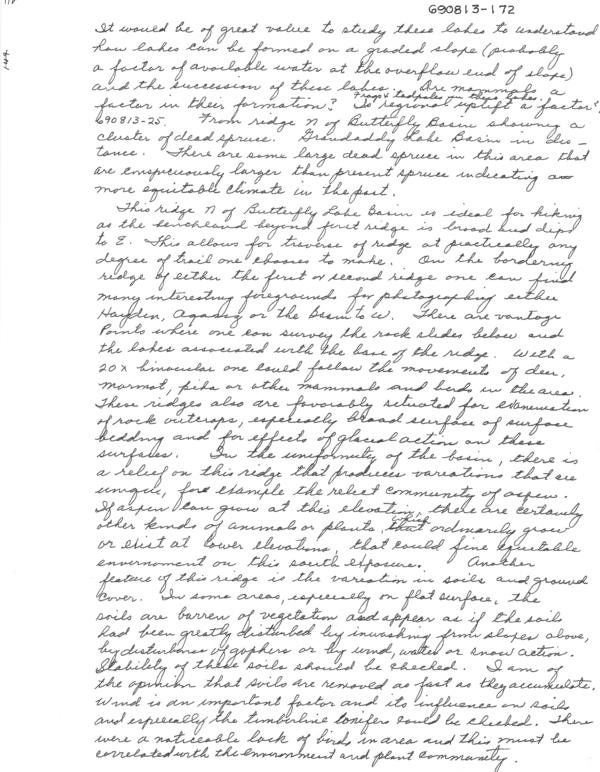 690813-172
118
144
It would be of great value to study these lakes to understand
how lakes can be formed on a graded slope (probably
a factor of available water at the overflow end of slope)
and the succession of these lakes. Are mammals a
factor in their formation? Frogs & tadpoles in these lakes. Is regional uplift a factor?
690813-25. From ridge N of Butterfly Basin showing a
cluster of dead spruce. Grandaddy Lake Basin in dis-
tance. There are some large dead spruce in this area that
are conspicuously larger than present spruce indicating a
more equitable climate in the past.
This ridge N of Butterfly Lake Basin is ideal for hiking
as the benchland beyond first ridge is broad and dips
to E. This allows for traverse of ridge at practically any
degree of trail one chooses to make. On the bordering
ridge of either the first or second ridge one can find
many interesting foregrounds for photographing either
Hayden, Agassiz or the basin to W. There are vantage
Points where one can survey the rock slides below and
the lakes associated with the base of the ridge. With a
20x binocular one could follow the movements of deer,
marmot, pika or other mammals and birds in the area.
These ridges also are favorably situated for examination
of rock outcrops, especially broad surface of surface
bedding and for effects of glacial action on these
surfaces. In the uniformity of the basin, there is
a relief on this ridge that produces variations that are
unique, for example the relict community of aspen.
If aspen can grow at this elevation, there are certainly
other kinds of animals or plants, which ordinarily grow
or exist at lower elevations, that could fine equitable
environment on this south exposure. Another
feature of this ridge is the variation in soils and ground
cover. In some areas, especially on flat surface, the
soils are barren of vegetation and appear as if the soils
had been greatly disturbed by inwashing from slopes above,
by disturbance of gophers or by wind, water or snow action.
Stability of these soils should be checked. I am of
the opinion that soils are removed as fast as they accumulate.
Wind is an important factor and its influence on soils
and especially the timberline conifers could be checked. There
were a noticeable lack of birds in area and this must be
correlated with the environment and plant community.